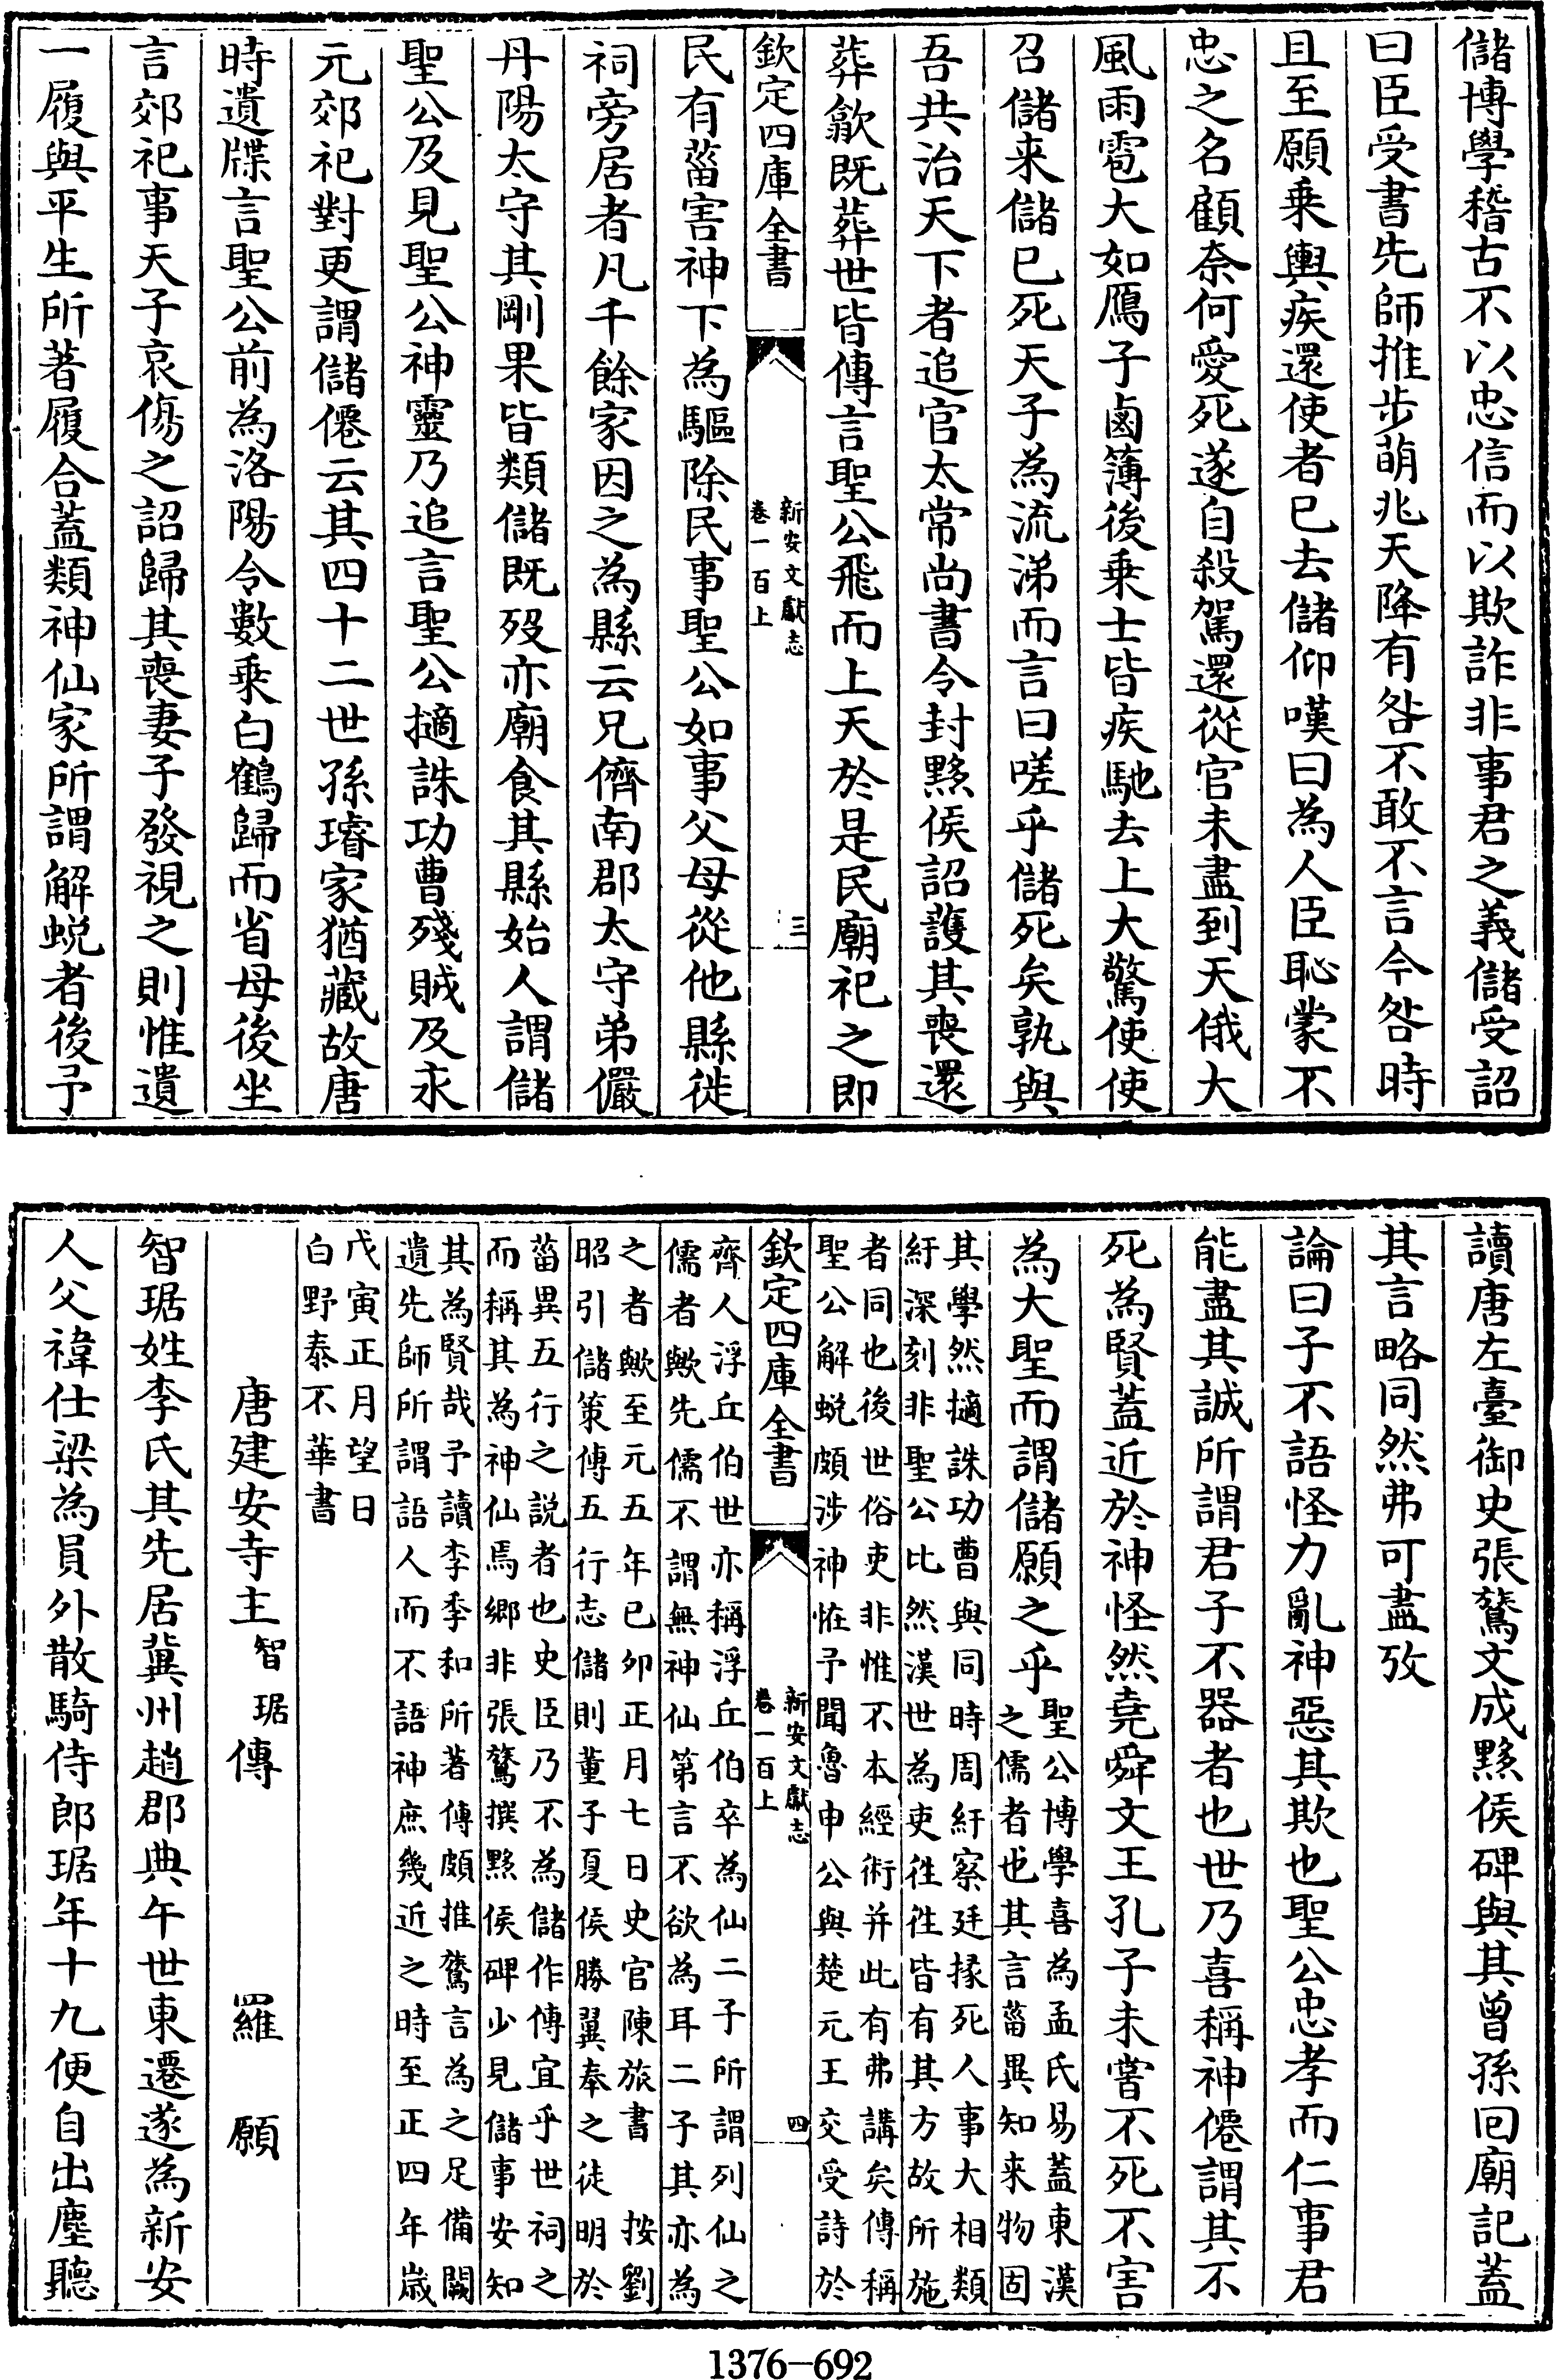 儲博學稽古不以忠信而以欺詐非事君之義儲受詔
曰臣受書先師推步萌兆天降有咎不敢不言今咎時
且至願乗輿疾還使者已去儲仰嘆曰為人臣恥蒙不
忠之名顧奈何愛死遂自殺駕還從官未盡到天俄大
風雨雹大如鴈子鹵簿後乗士皆疾馳去上大驚使使
召儲来儲已死天子為流涕而言曰嗟乎儲死矣孰與
吾共治天下者追官太常尚書令封黟侯詔護其喪還
葬歙既葬世皆傳言聖公飛而上天於是民廟祀之即
欽定四庫全書
新安文獻志
卷一百上
三
民有菑害神下為驅除民事聖公如事父母從他縣徙
祠旁居者凡千餘家因之為縣云兄儕南郡太守弟儼
丹陽太守其剛果皆類儲既歿亦廟食其縣始人謂儲
聖公及見聖公神靈乃追言聖公擿誅功曹殘賊及永
元郊祀對更謂儲僊云其四十二世孫璿家猶藏故唐
時遺牒言聖公前為洛陽令數乗白鶴歸而省母後坐
言郊祀事天子哀傷之詔歸其喪妻子發視之則惟遺
一履與平生所著履合蓋類神仙家所謂解蛻者後予
讀唐左臺御史張鷟文成黟侯碑與其曾孫回廟記蓋
其言略同然弗可盡攷
論曰子不語怪力亂神惡其欺也聖公忠孝而仁事君
能盡其誠所謂君子不器者也世乃喜稱神僊謂其不
死為賢蓋近於神怪然堯舜文王孔子未嘗不死不害
為大聖而謂儲願之乎聖公博學喜為孟氏易蓋東漢
之儒者也其言菑異知来物固
其學然擿誅功曹與同時周紆察廷掾死人事大相類
紆深刻非聖公比然漢世為吏徃徃皆有其方故所施
者同也後世俗吏非惟不本經術并此有弗講矣傳稱
聖公解蛻頗涉神恠予聞魯申公與楚元王交受詩於
欽定四庫全書
新安文獻志
卷一百上
四
齊人浮丘伯世亦稱浮丘伯卒為仙二子所謂列仙之
儒者歟先儒不謂無神仙第言不欲為耳二子其亦為
之者歟至元五年己卯正月七日史官陳旅書　按劉
昭引儲策傳五行志儲則董子夏侯勝翼奉之徒明於
菑異五行之説者也史臣乃不為儲作傳宜乎世祠之
而稱其為神仙焉鄉非張鷟撰黟侯碑少見儲事安知
其為賢哉予讀李季和所著傳頗推鷟言為之足備闕
遺先師所謂語人而不語神庶幾近之時至正四年歳
戊寅正月望日
白野泰不華書
唐建安寺主智琚傳　羅願
智琚姓李氏其先居冀州趙郡典午世東遷遂為新安
人父禕仕梁為員外散騎侍郎琚年十九便自出塵聽
1376-692